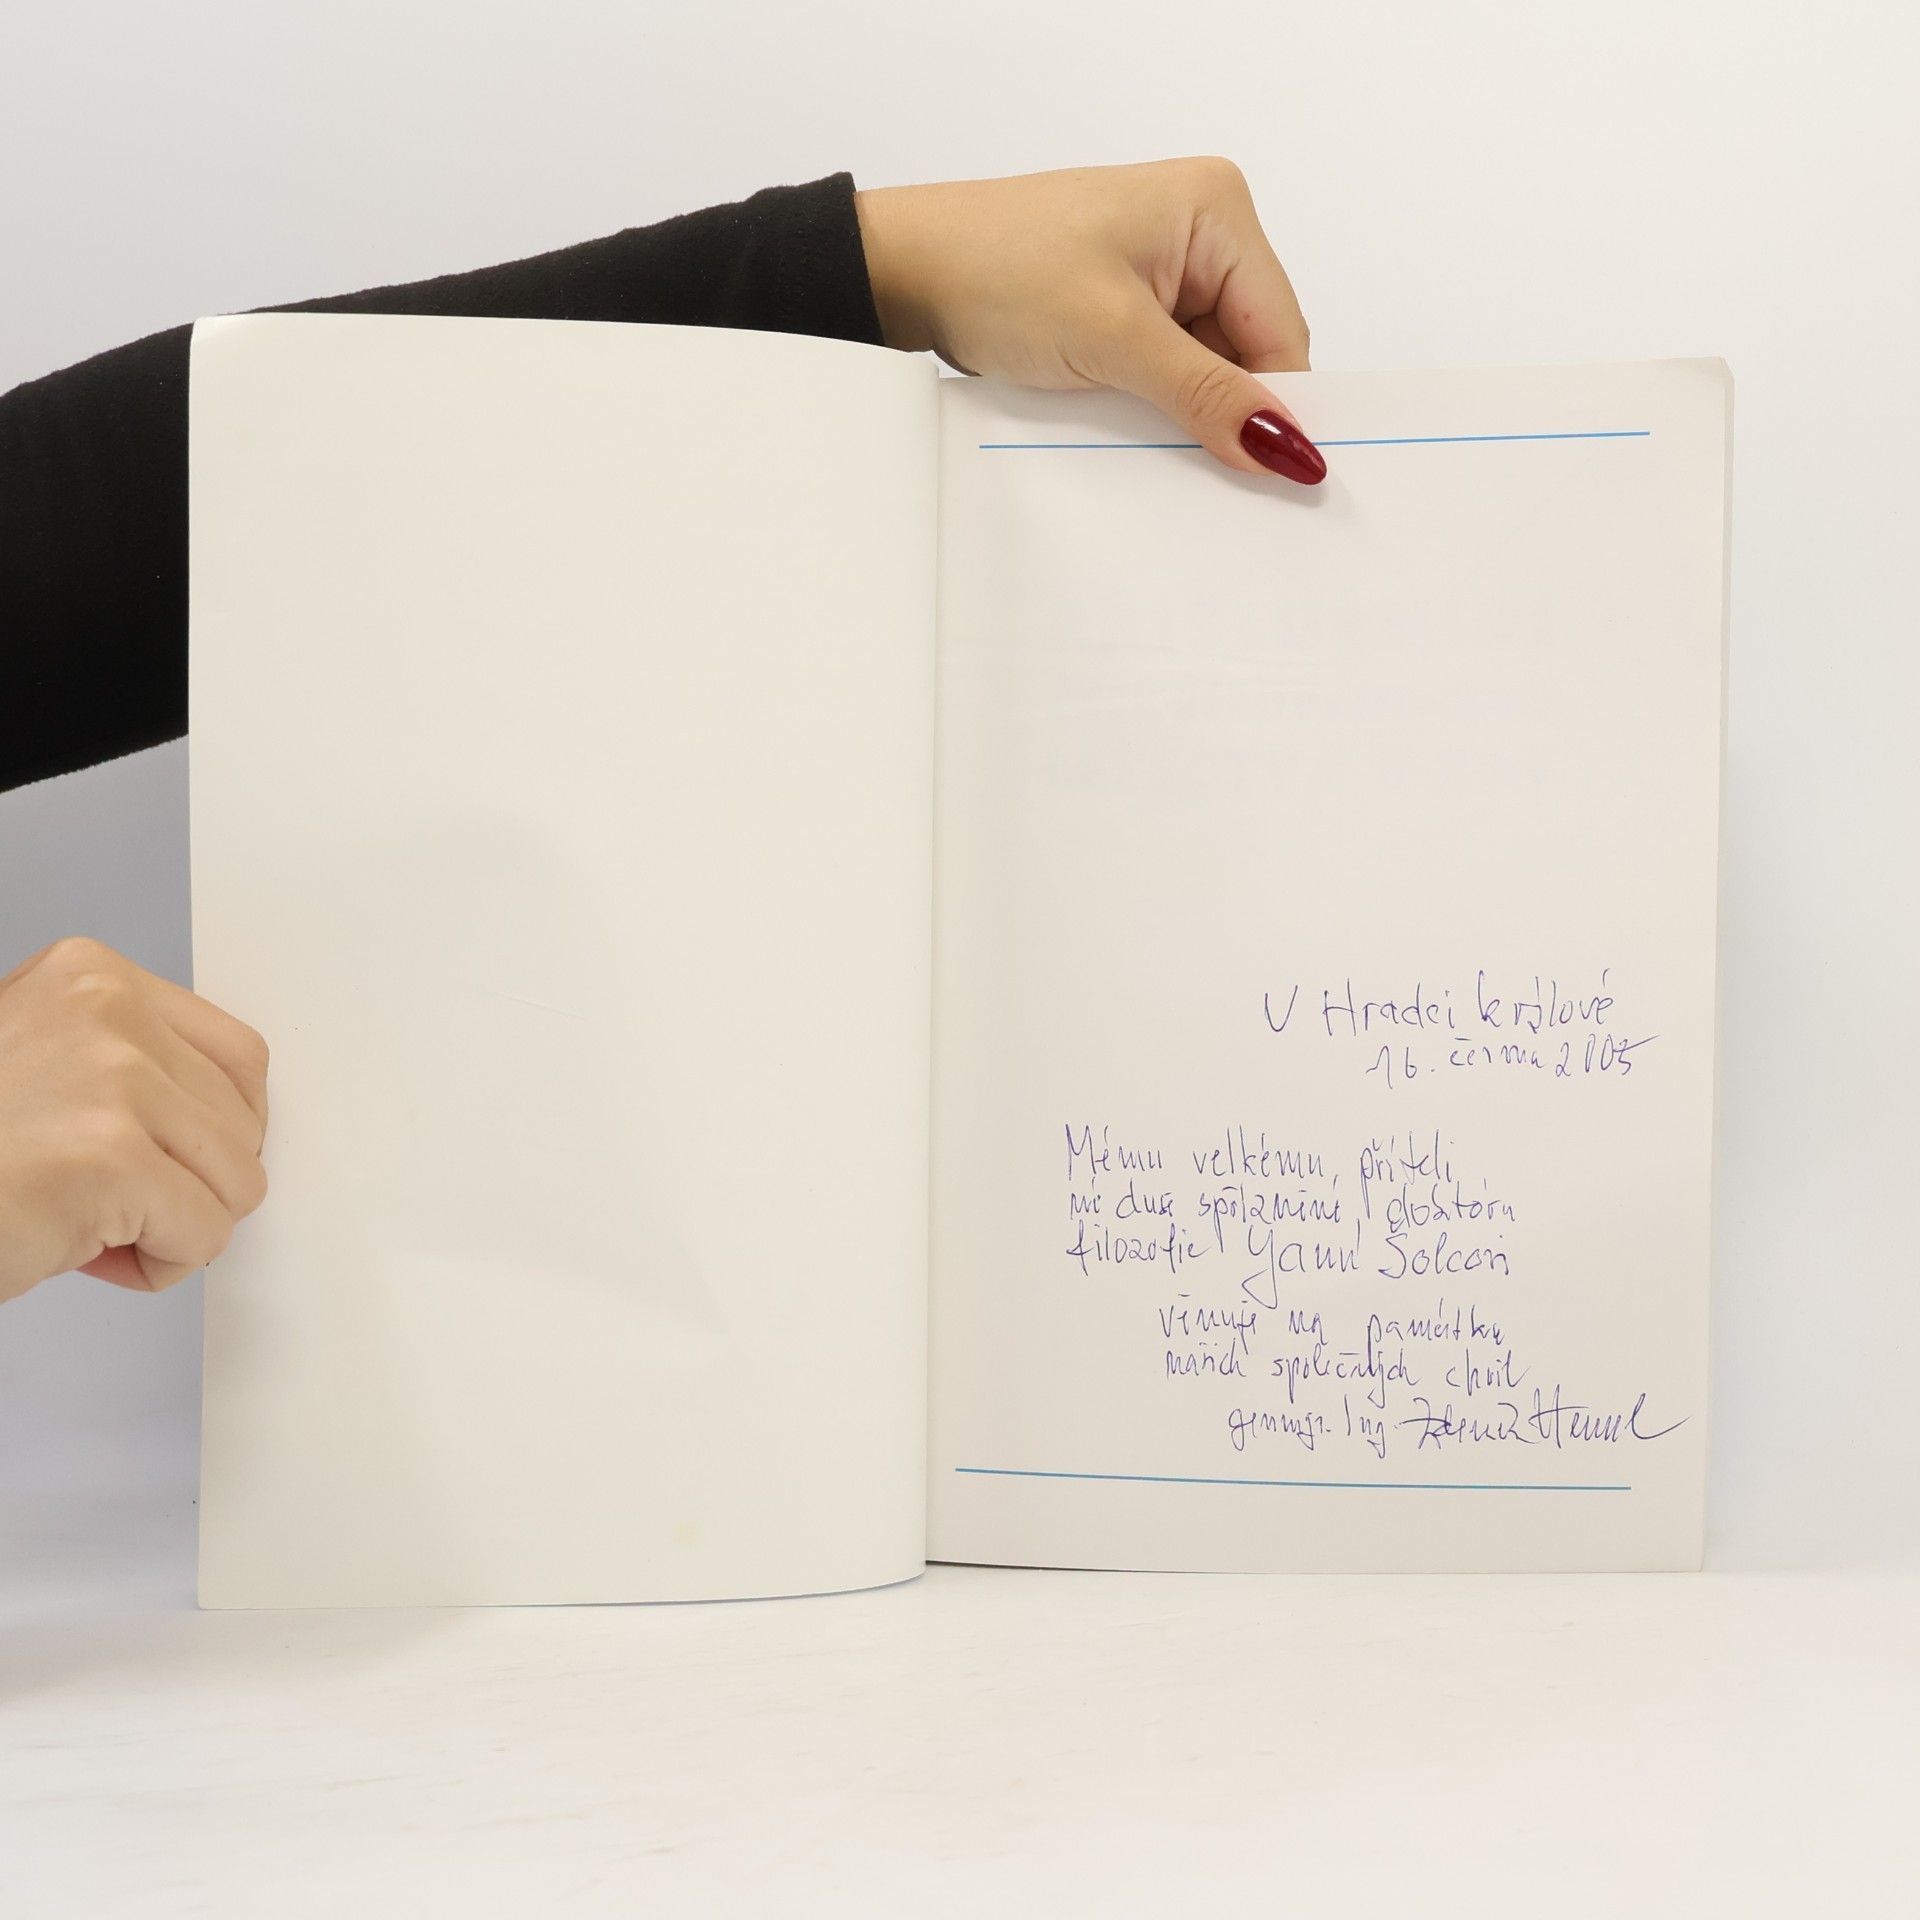 V Hradci Králové
16. června 2005
Mému velkému příteli
mé duši spřízněné, doktoru
filozofie Yann Šolcovi
věnuji na památku
našich společných chvil
genmjr. Ing. Zdeněk